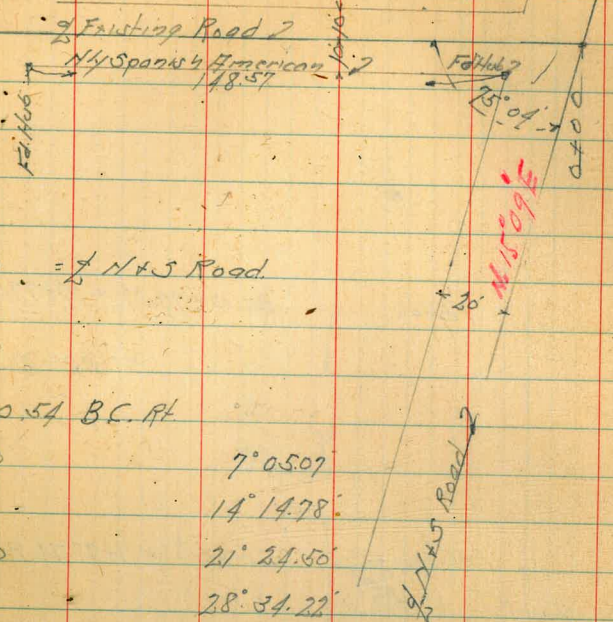 ℄ Existing Road ?
N'ly Spanish American ?
148.57
10+10
Fd. Hub
Fd Hub ?
75° 04'
0+00
N 15° 09' E
= ℄ N + S Road.
20'
0.54 B.C. Rt
7° 05.07'
14° 14.78'
21° 24.50'
28° 34.22'
℄ N + S Road ?